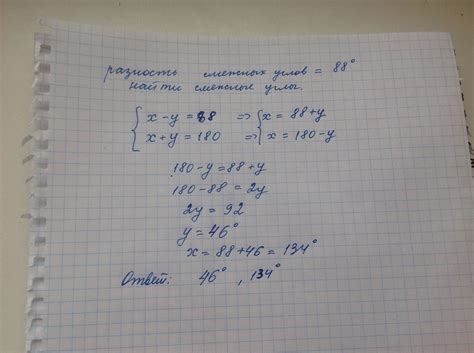 разность смежных углов = 88°
найти смежные углы.
{ x - y = 88 => { x = 88 + y
{ x + y = 180 => { x = 180 - y
180 - y = 88 + y
180 - 88 = 2y
2y = 92
y = 46°
x = 88 + 46 = 134°
Ответ: 46°, 134°